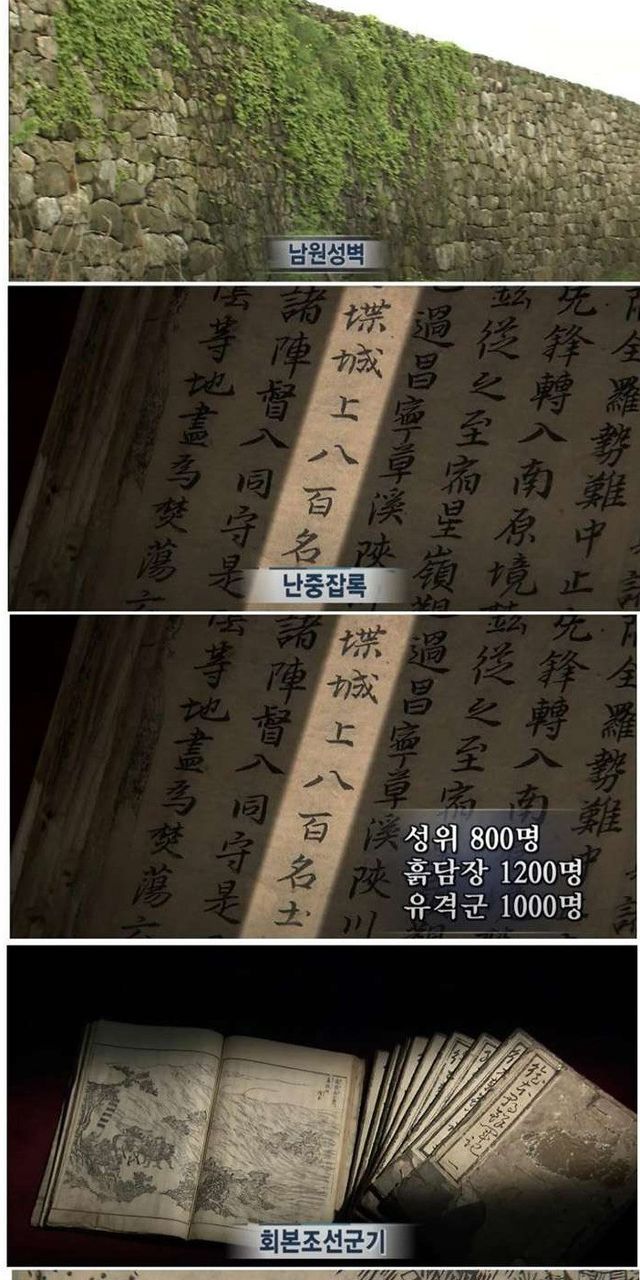 남원성벽
全羅勢難中止
先鋒轉入南原境
從之至宿星嶺
過昌寧草溪陜
堞城上八百名
諸陣督入同守是
等地盡爲焚蕩
난중잡록
全羅勢難中
先鋒轉入南
從之至宿
過昌寧草溪陜川
堞城上八百名土
諸陣督入同守是
等地盡爲焚蕩
성위 800명
흙담장 1200명
유격군 1000명
회본조선군기